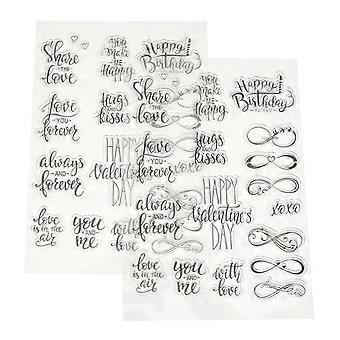 Share
THE
love
you
make
ME
Happy
Happy
Birthday
love
YOU
forever
Hugs
AND
kisses
always
AND
forever
HAPPY
Valentine's
DAY
love
is in the
air
you
AND
me
Share
THE
love
you
make
ME
Happy
Happy
Birthday
TO YOU
love
YOU
forever
Hugs
AND
kisses
xoxo
always
AND
forever
HAPPY
Valentine's
DAY
xoxo
love
is in the
air
you
AND
me
with
love